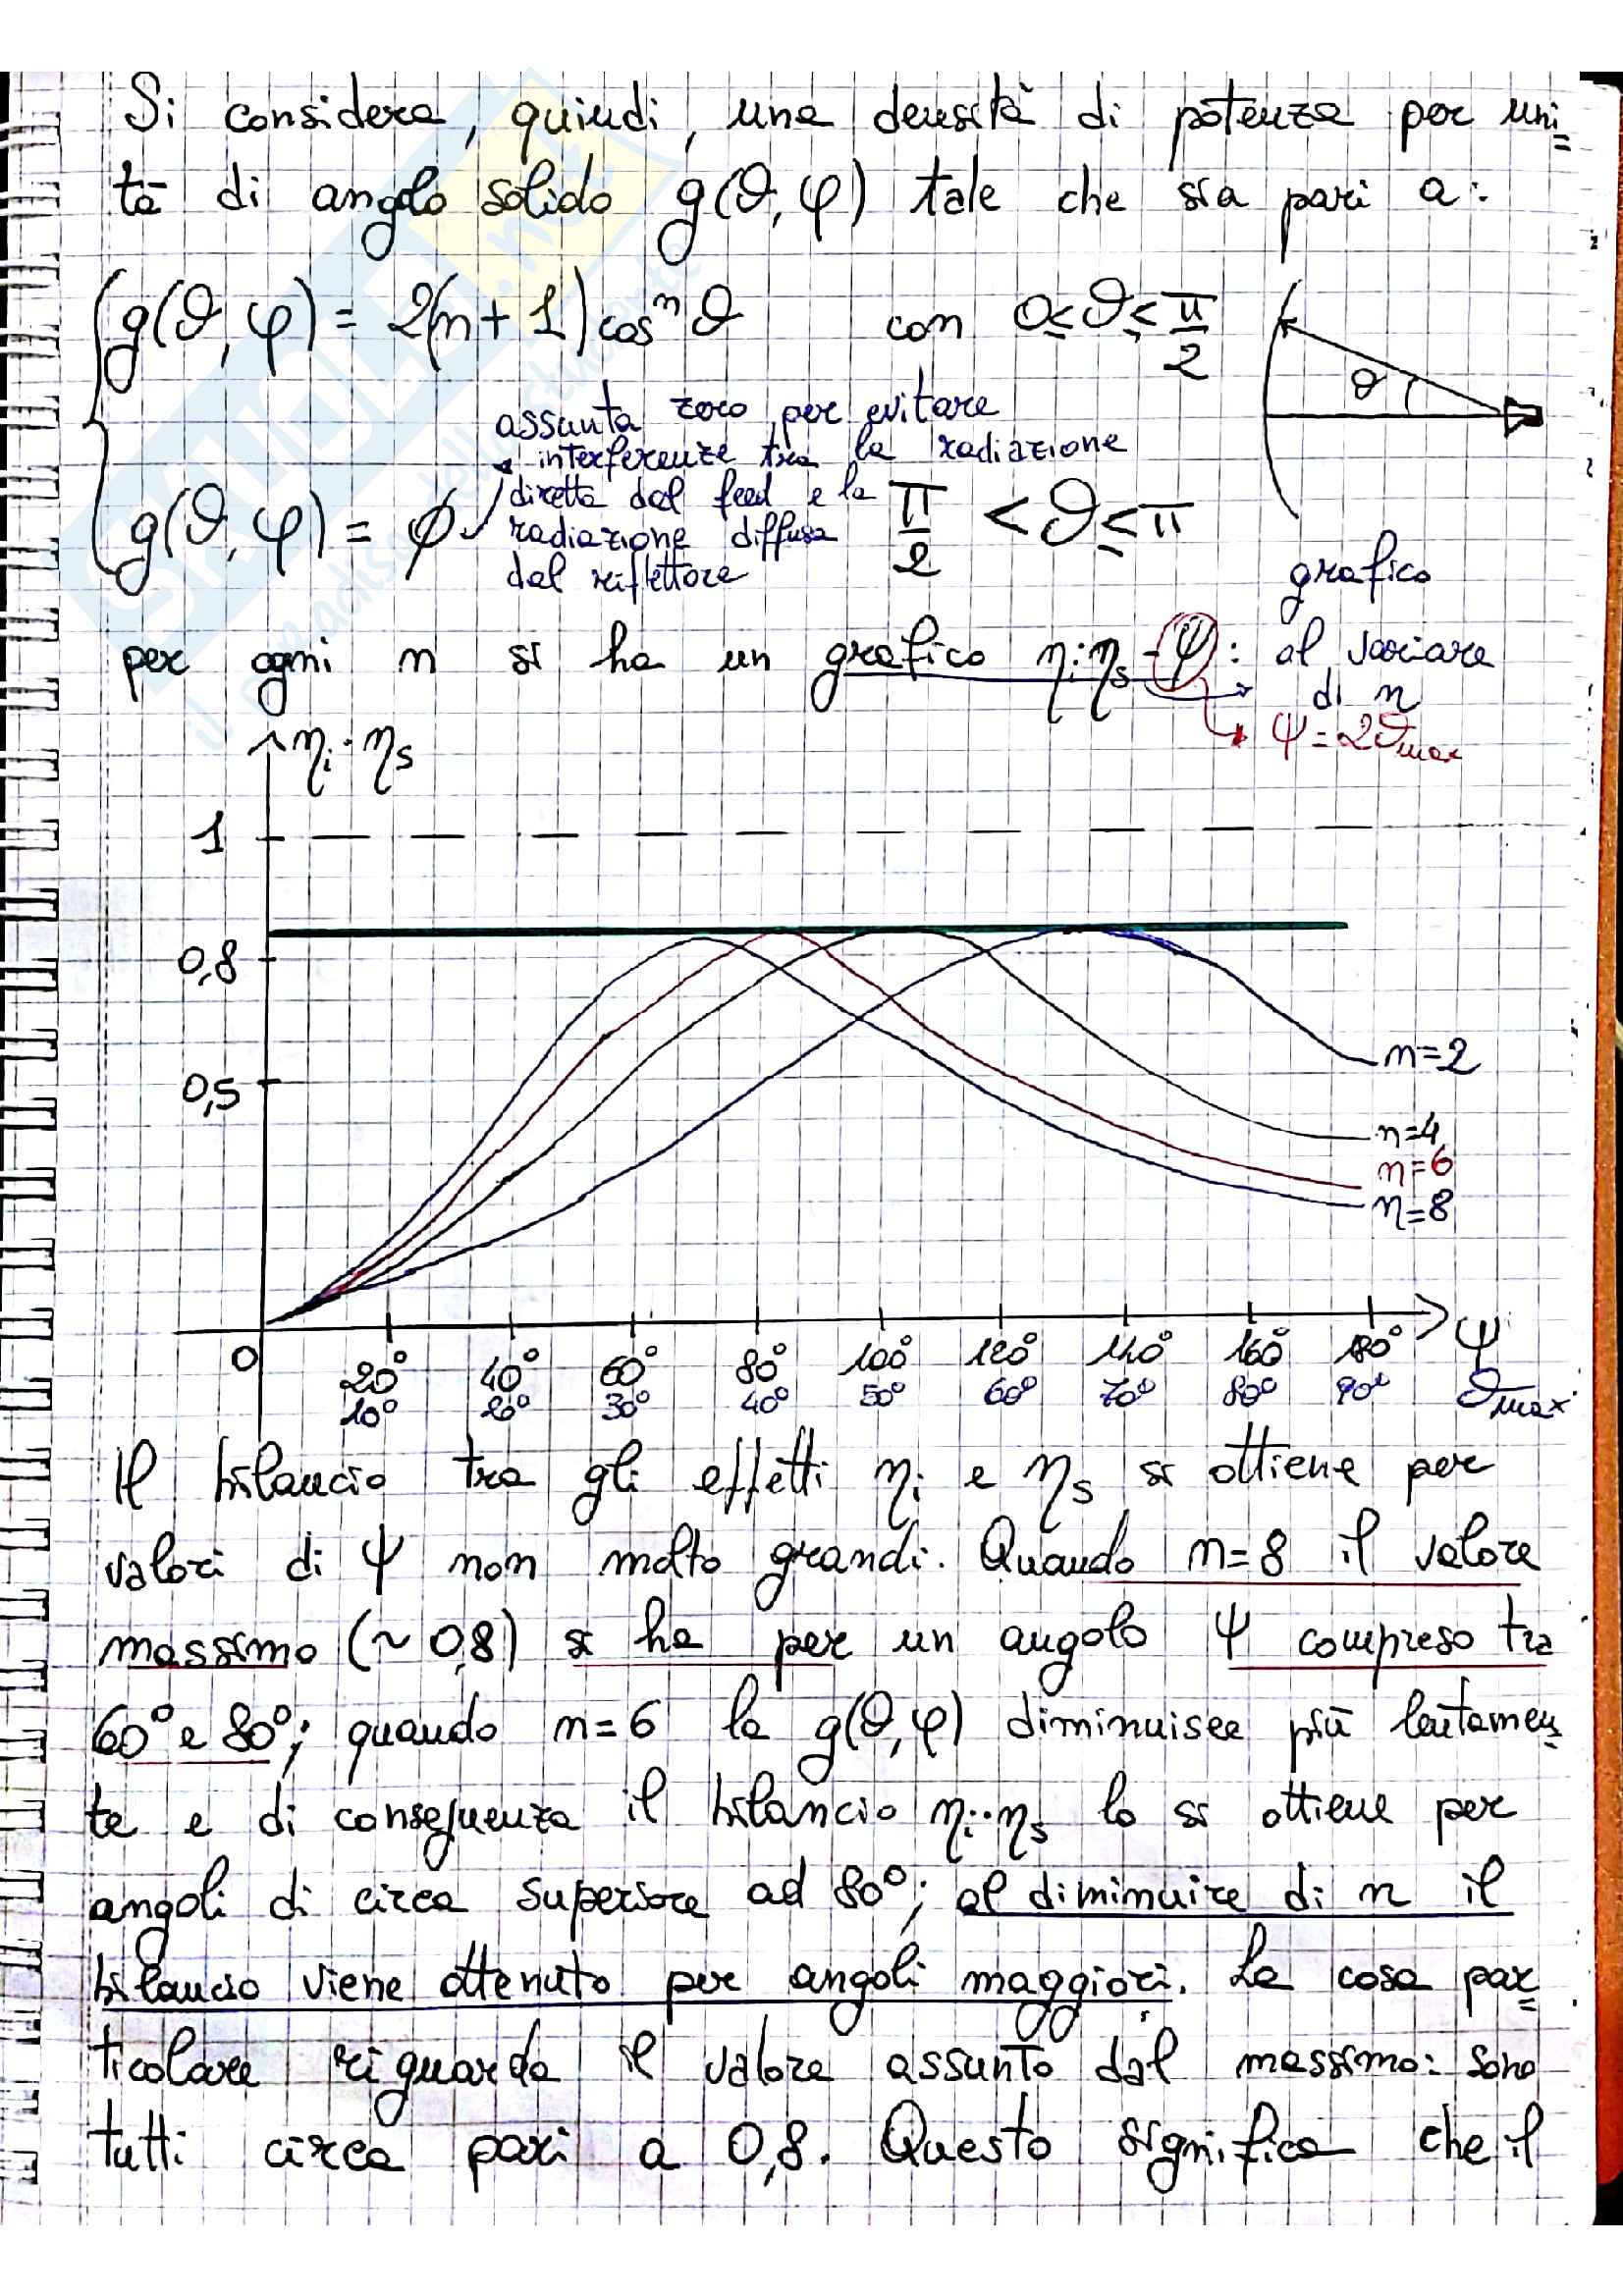 Si considera, quindi, una densità di potenza per uni=
tà di angolo solido g(ϑ,φ) tale che sia pari a:
g(ϑ,φ) = 2(n+1)cosⁿϑ con 0≤ϑ≤π/2
ϑ
assunta zero per evitare
interferenze tra la radiazione
diretta dal feed e la
radiazione diffusa
dal riflettore
g(ϑ,φ) = ø π/2 <ϑ≤π
grafico
per ogni n si ha un grafico ηi·ηs-ψ: al variare
di n
ψ=2ϑmax
ηi·ηs
1
0,8
0,5
n=2
n=4
n=6
n=8
0 20° 40° 60° 80° 100° 120° 140° 160° 180° ψ
10° 20° 30° 40° 50° 60° 70° 80° 90° ϑmax
Il bilancio tra gli effetti ηi e ηs si ottiene per
valori di ψ non molto grandi. Quando n=8 il valore
massimo (~0,8) si ha per un angolo ψ compreso tra
60° e 80°; quando n=6 la g(ϑ,φ) diminuisce più lentamen=
te e di conseguenza il bilancio ηi·ηs lo si ottiene per
angoli di circa superiore ad 80°; al diminuire di n il
bilancio viene ottenuto per angoli maggiori. La cosa par=
ticolare riguarda il valore assunto dal massimo: sono
tutti circa pari a 0,8. Questo significa che il
SKUOLA.net
il paradiso dello studente